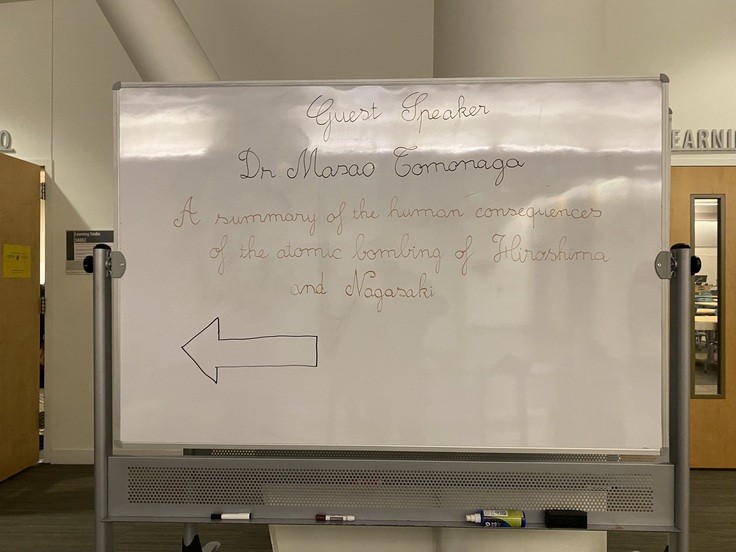 Guest Speaker
Dr. Masao Tomonaga
A summary of the human consequences
of the atomic bombing of Hiroshima
and Nagasaki
EARNIN
Learning Studio